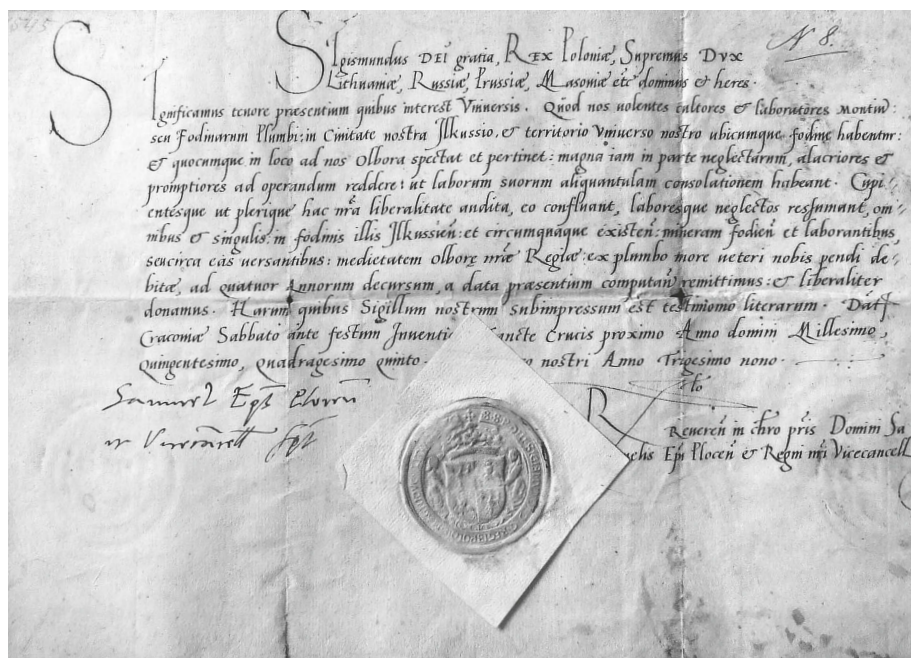 N 8.
Sigismundus DEI gratia, REX Poloniæ, Supremus Dux
Lithuaniæ, Russiæ, Prussiæ, Masoniæ etc̃ dominus & heres.
Significamus tenore præsentium quibus interest Vniuersis. Quod nos uolentes cultores & laboratores montiũ:
seu Fodinarum Plumbi: in Ciuitate nostra Jlkussio, & territorio Vniuerso nostro ubicumque fodinæ habentur:
& quocumque in loco ad nos Olbora spectat et pertinet: magna iam in parte neglectarum, alacriores &
promptiores ad operandum reddere: ut laborum suorum aliquantulam consolationem habeant. Cupi-
entesque ut plerique hac nrã liberalitate audita, eo confluant, laboresque neglectos resumant, om-
nibus & singulis: in fodinis illis Jlkussien̄: et circumquaque existen̄: mineram fodien̄ et laborantibus
seu circa eas uersantibus: medietatem Olboræ nrẽ Regiæ: ex plumbo more ueteri nobis pendi de-
bitæ, ad quatuor Annorum decursum, a data præsentium computan̄ remittimus: & liberaliter
donamus. Harum quibus Sigillum nostrum subimpressum est testimonio literarum. Dat̃
Cracouiæ Sabbato ante festum Inuenti Sancte Crucis proximo Anno domini Millesimo
Quingentesimo, Quadragesimo Quinto. nostri Anno Trigesimo nono.
Samuel Ep̃s Plocen̄
Vicecancell
R̃eueren̄ in chr̃o pr̃is Domini Sa
uelis Ep̃i Plocen̄ & Regni nr̃i Vicecancell